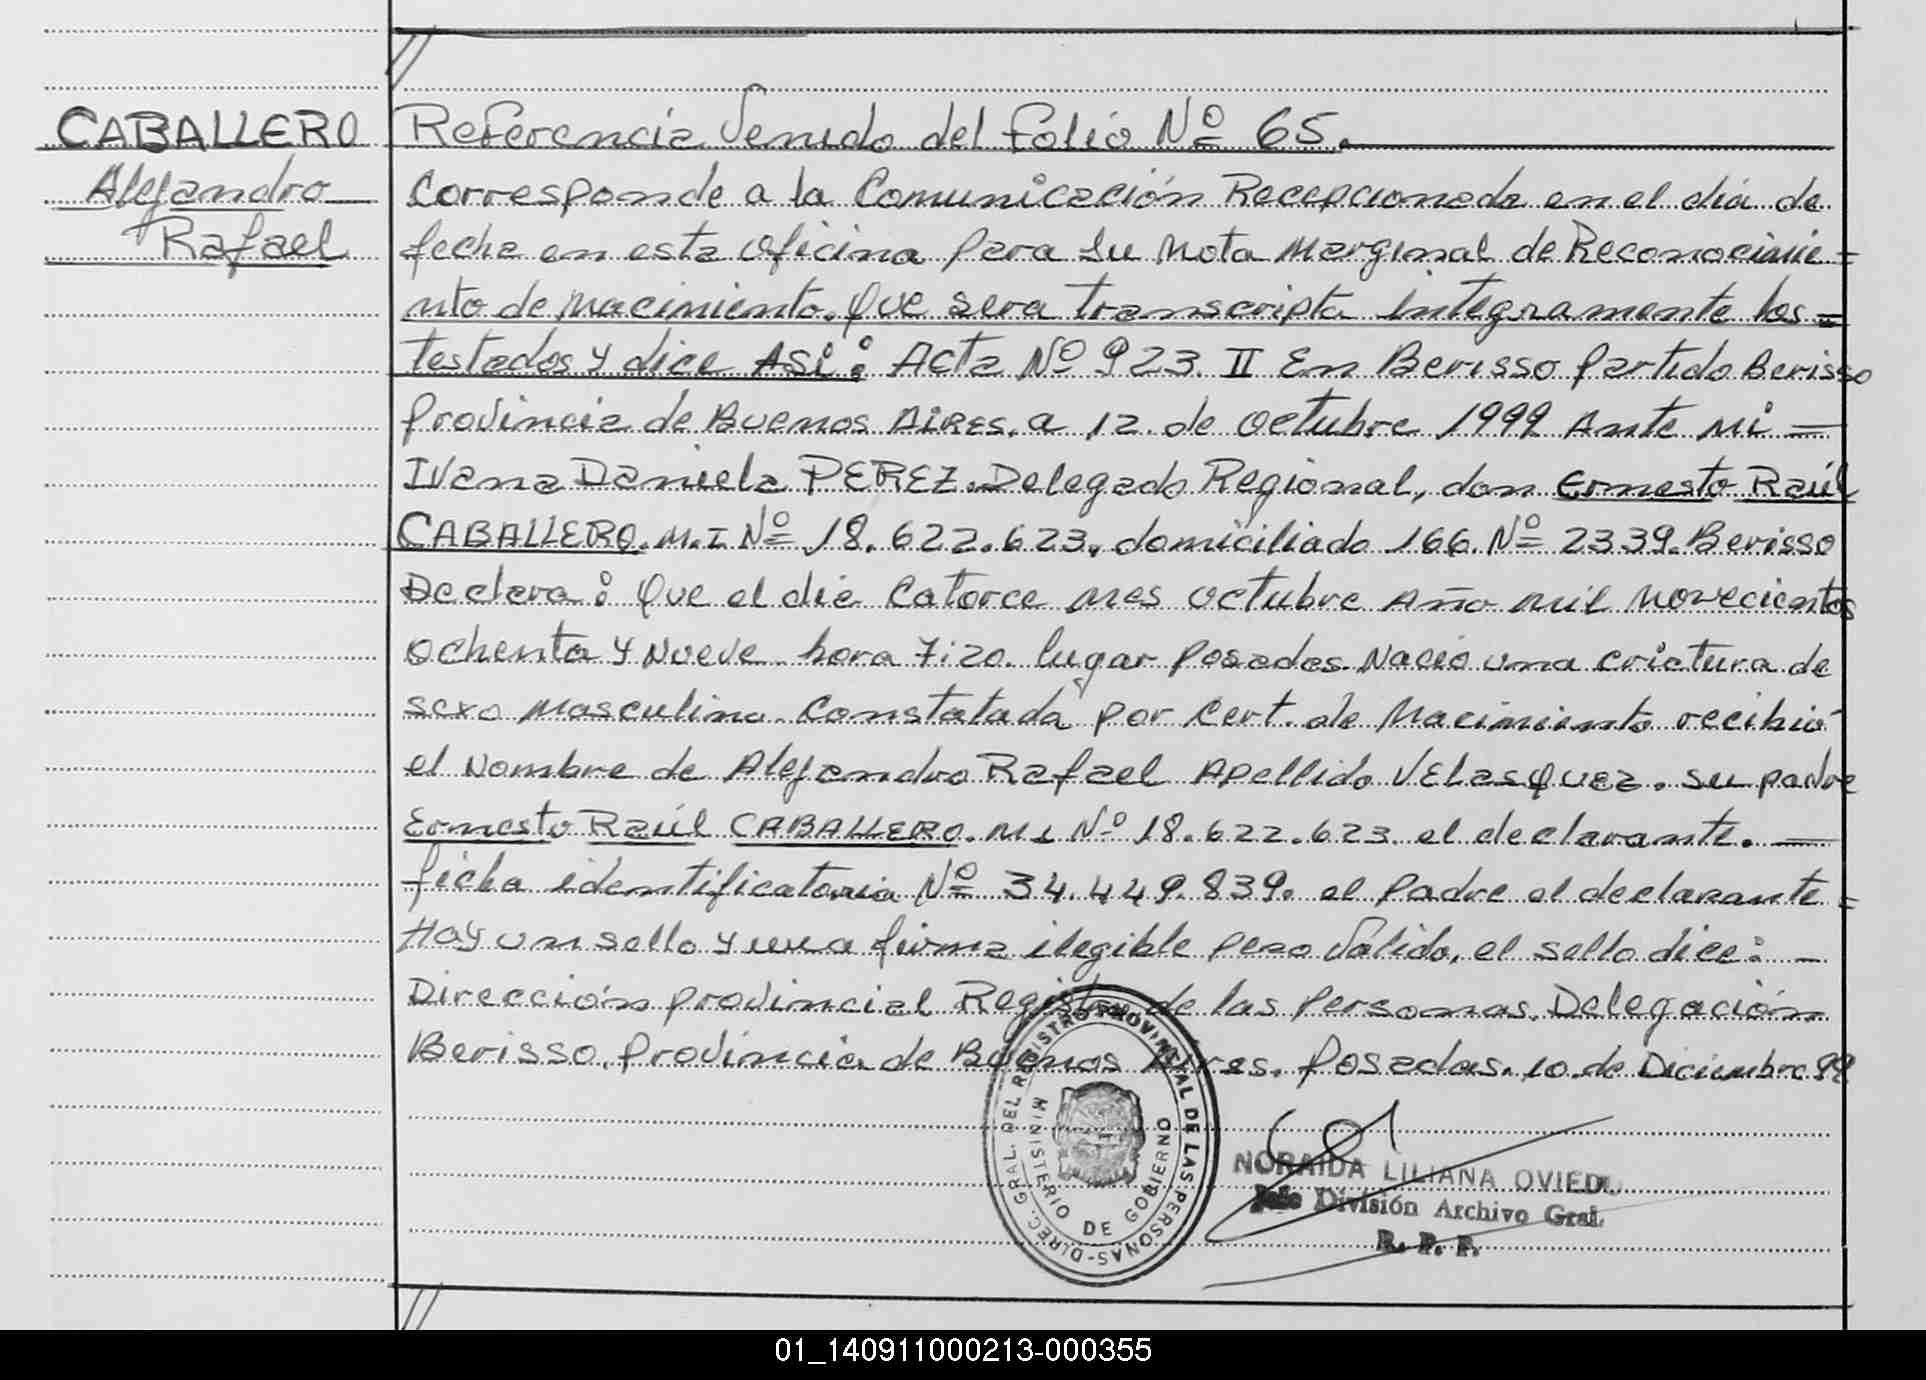 CABALLERO
Alejandro
Rafael
Referencia Venido del folio Nº 65.
Corresponde a la Comunicación Recepcionada en el día de
fecha en esta oficina para su Nota Marginal de Reconocimie=
nto de Nacimiento. Que sera transcripta integramente los=
testados y dice ASi: Acta Nº 923 II En Berisso Partido Berisso
Provincia de Buenos AiRES. a 12 de octubre 1999 Ante Mi —
Ivana Daniela PEREZ. Delegado Regional, don Ernesto Raúl
CABALLERO. M.I Nº 18.622.623, domiciliado 166 Nº 2339. Berisso
Declara: Que el día Catorce mes octubre Año Mil Novecientos
ochenta y Nueve hora 7:20 lugar Posadas Nació una criatura de
sexo Masculino. Constatada por Cert. de Nacimiento recibió
el Nombre de Alejandro Rafael Apellido VElasquez. su padre
Ernesto Raúl CABALLERO. M I Nº 18.622.623 el declarante. —
ficha identificatoria Nº 34.449.839. el Padre el declarante =
Hay un sello y una firma ilegible pero Valido, el sello dice: —
Dirección provincial Registro de las Personas. Delegación
Berisso. Provincia de Buenos Aires. Posadas. 10 de Diciembre 99
DIREC. GRAL. DEL REGISTRO PROVINCIAL DE LAS PERSONAS-
MINISTERIO DE GOBIERNO
NORAIDA LILIANA OVIEDO
Jefe División Archivo Gral.
R. P. P.
01_140911000213-000355